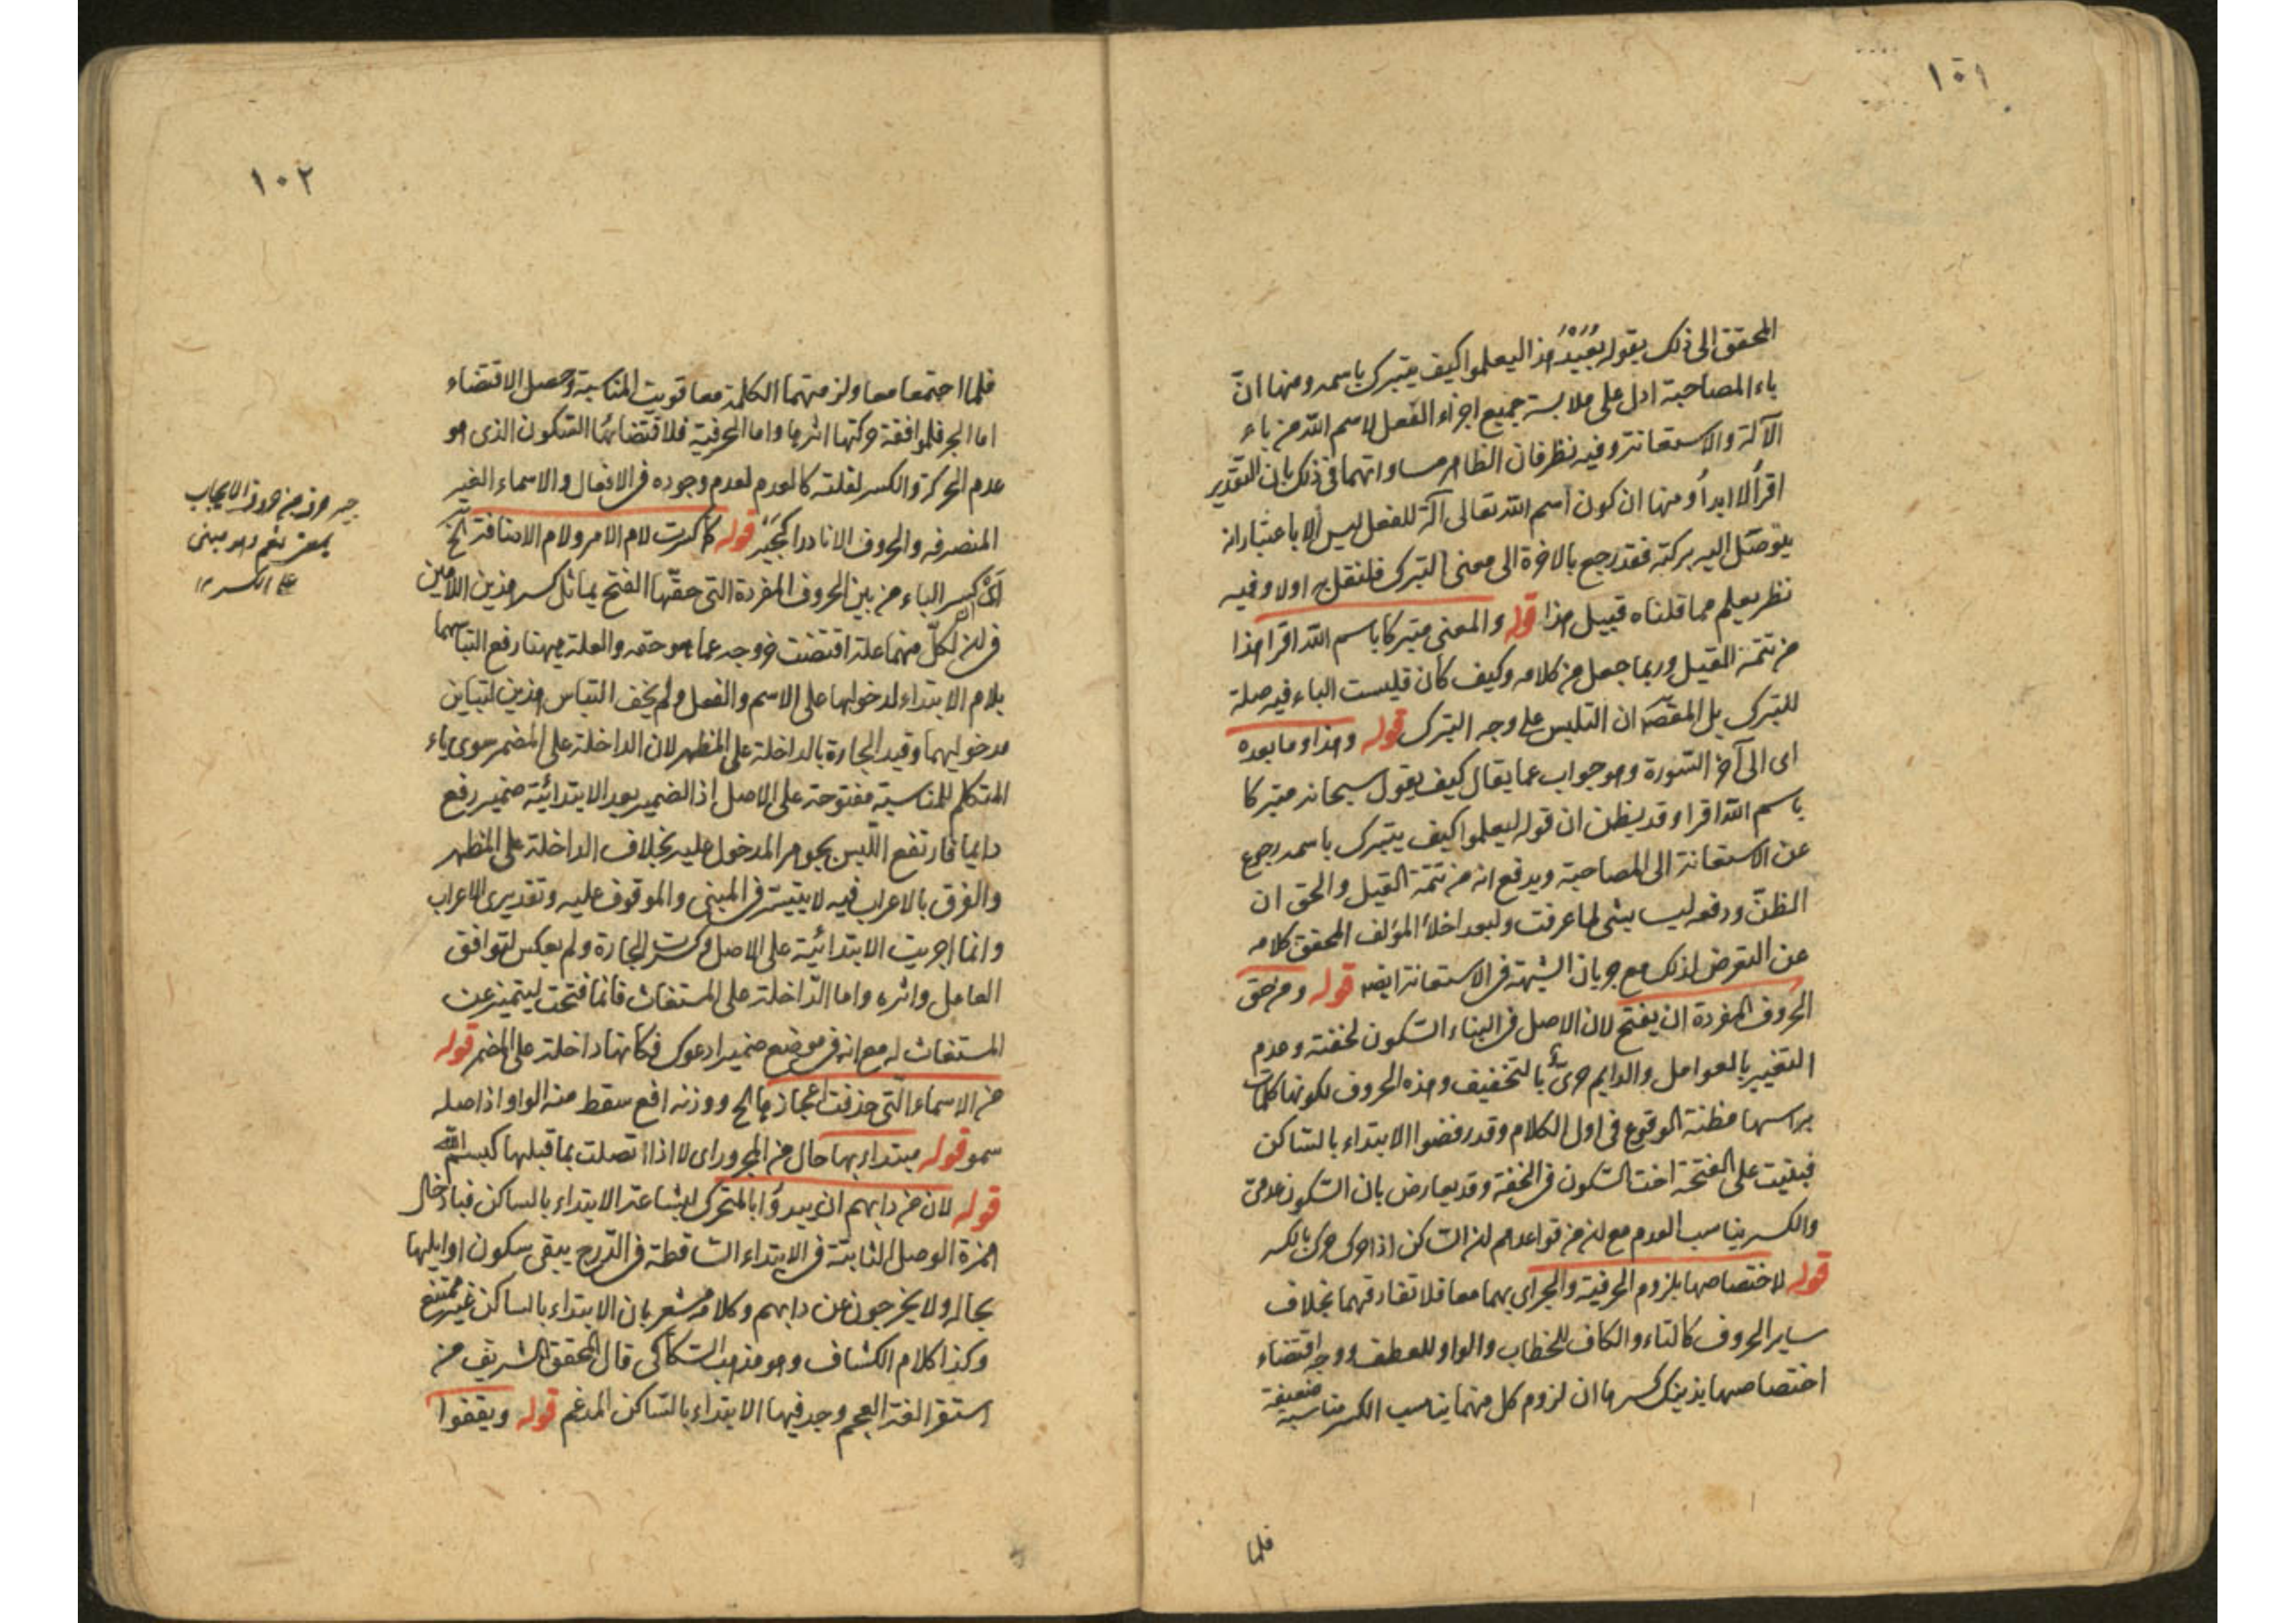 ١٠١
المحقق الى ذلك بقوله بُعَيْدَ هذا ليعلموا كيف يتبرك باسمه ومنها انّ
باء المصاحبة ادل على ملابسة جميع اجزاء الفعل لاسم الله من باء
الآلة والاستعانة وفيه نظر فان الظاهر مساواتهما فى ذلك بان التقدير
اقرأ لا ابدأ ومنها ان كون اسم الله تعالى آلة للفعل ليس الا باعتبار انه
يتوصّل اليه ببركته فقد رجع بالاخرة الى معنى التبرك فلنقل به اولا وفيه
نظر يعلم مما قلناه قبيل هذا قوله والمعنى متبركا باسم الله اقرا هذا
من تتمة القيل وربما جعل من كلامه وكيف كان فليست الباء فيه صلة
للتبرك بل المقصد ان التلبس على وجه التبرك قوله وهذا وما بعده
اى الى آخر السّورة وهو جواب عما يقال كيف يقول سبحانه متبركا
باسم الله اقرا وقد يظن ان قوله ليعلموا كيف يتبرك باسمه رجوع
عن الاستعانة الى المصاحبة ويدفع انه من تتمة القيل والحق ان
الظنّ ودفعه ليسا بشى لما عرفت ولبعد اخلاء المؤلف المحقق كلامه
عن التعرض لذلك مع جريان الشبهة فى الاستعانة ايضا قوله ومن حق
الحروف المفردة ان يفتح لان الاصل فى البناء السّكون لخفته وعدم
التغيير بالعوامل والدايم حرىّ بالتخفيف وهذه الحروف لكونها كلمات
براسها مظنة الوقوع فى اول الكلام وقد رفضوا الابتداء بالسّاكن
فبقيت على الفتحة اخت السّكون فى الخفة وقد يعارض بان السّكون عدمىّ
والكسر يناسب العدم مع ان من قواعدهم ان السّاكن اذا حرك حرك بالكسر
قوله لاختصاصها بلزوم الحرفية والجر اى بهما معا فلا تفارقهما بخلاف
ساير الحروف كالتاء والكاف للخطاب والواو للعطف ووجه اقتضاء
اختصاصها بذينك كسرها ان لزوم كل منهما يناسب الكسر مناسبة ضعيفة
فلما
١٠٢
فلما اجتمعا معا ولزمتهما الكلمة معا قويت المناسبة وحصل الاقتضاء
اما الجر فلموافقة حركتها اثرها واما الحرفية فلاقتضائها السّكون الذى هو
عدم الحركة والكسر لقلته كالعدم لعدم وجوده فى الافعال والاسماء الغير
المنصرفه والحروف الا نادرا كجَيْرِ قوله كما كسرت لام الامر ولام الاضافة الخ
اى كسر الباء من بين الحروف المفردة التى حقّها الفتح يماثل كسر هذين اللامين
فى ان لكلّ منهما علة اقتضت خروجه عما هو حقه والعلة ههنا رفع التباسهما
بلام الابتداء لدخولها على الاسم والفعل ولم يخف التباس هذين لتباين
مدخوليهما وقيد الجارة بالداخلة على المظهر لان الداخلة على المضمر سوى ياء
المتكلم للمناسبة مفتوحة على الاصل اذ الضمير بعد الابتدائيّة ضمير رفع
دايما فارتفع اللّبس بجوهر المدخول عليه بخلاف الداخلة على المظهر
والفرق بالاعراب فيه لا يتيسّر فى المبنى والموقوف عليه وتقديرى الاعراب
وانما اجريت الابتدائيّة على الاصل وكسرت الجارة ولم يعكس لتوافق
العامل واثره واما الدّاخلة على المستغاث فانما فتحت ليتميز عن
المستغاث له مع انه فى موضع ضمير ادعوك فكانها داخلة على المضمر قوله
من الاسماء الّتى حذفت اعجازها الخ ووزنه افع سقط منه الواو اذ اصله
سمو قوله مبتداء بها حال من المجرور اى لا اذا اتصلت بما قبلها كبسم الله
قوله لان من دابهم ان يبدؤا بالمتحرك لبشاعة الابتداء بالساكن فبادخال
همزة الوصل الثابتة فى الابتداء السّاقطة فى الدّرج يبقى سكون اوايلها
بحاله ولا يخرجون عن دابهم وكلامه مشعر بان الابتداء بالساكن غير ممتنع
وكذا كلام الكشاف وهو مذهب السّكاكى قال المحقق الشريف من
استقرا لغة العجم وجد فيها الابتداء بالسّاكن المدغم قوله ويقفوا
جير حرف من حروف الايجاب
بمعنى نعم وهو مبنى
على الكسر ١٢